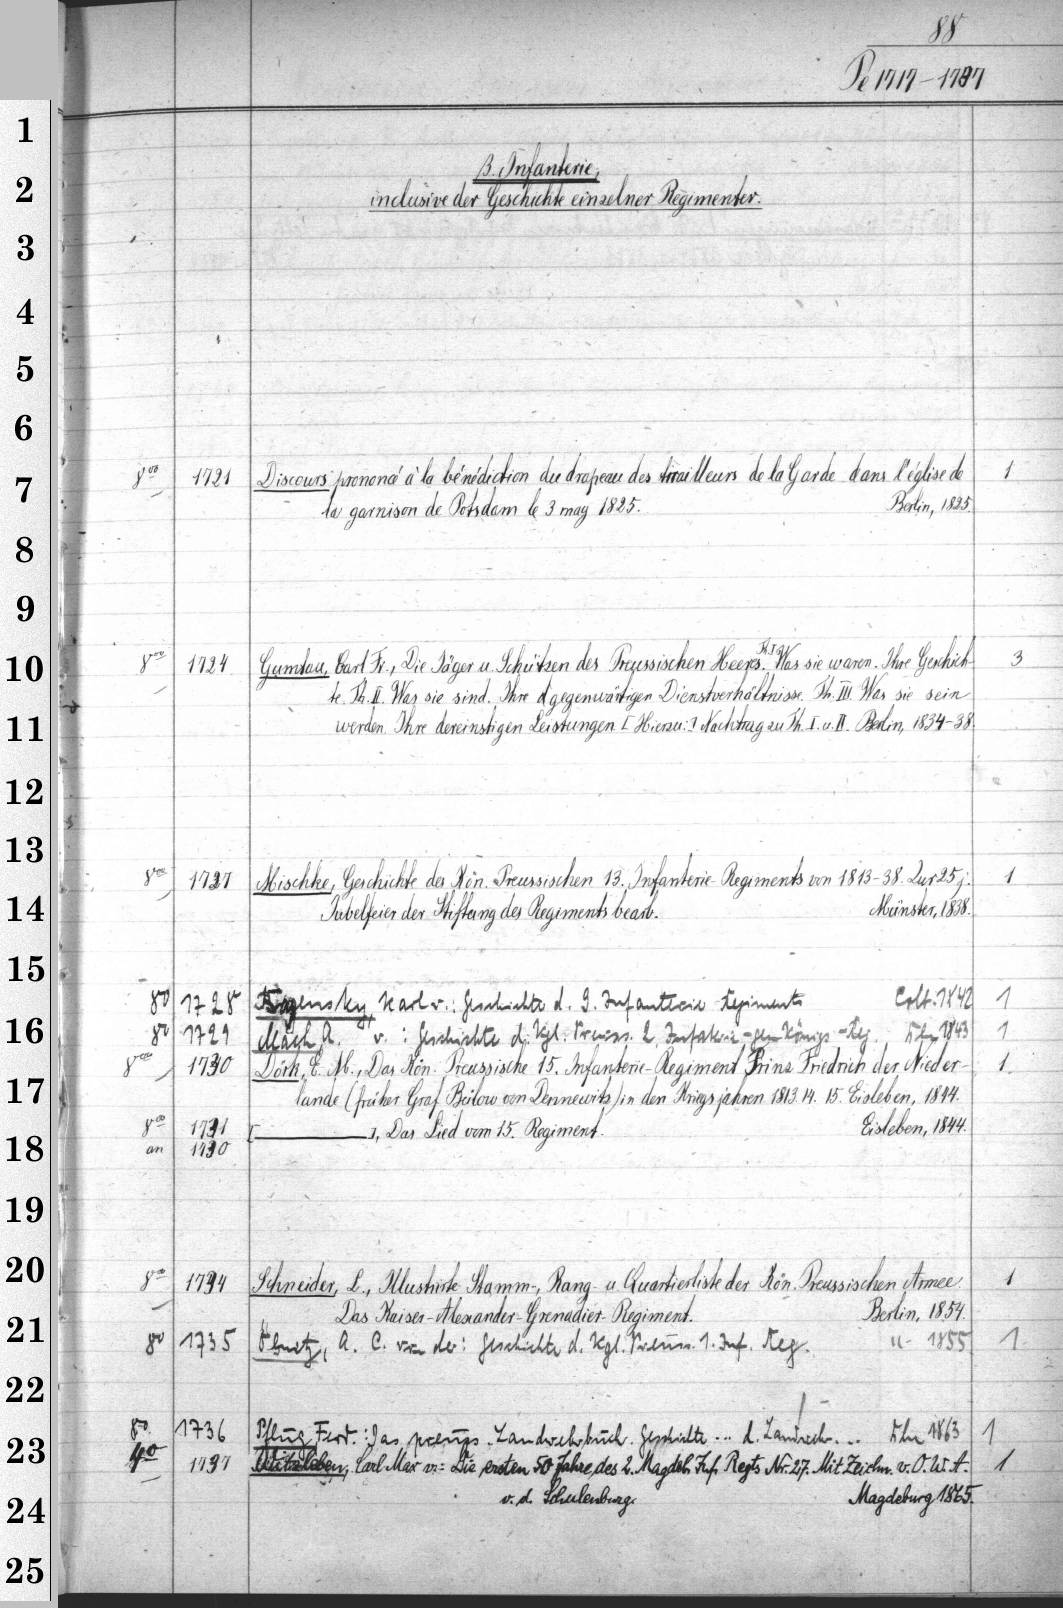 88
Pe 1717-1737
B. Infanterie,
inclusive der Geschichte einzelner Regimenter.
8vo 1721 Discours prononcé à la bénédiction du drapeau des tirailleurs de la Garde dans l'église de 1
la garnison de Potsdam le 3 may 1825. Berlin, 1825.
8vo 1724 Gumtau, Carl Fr., Die Jäger u. Schützen des Preussischen Heeres. Th. I. Was sie waren. Ihre Geschich- 3
te. Th. II. Was sie sind. Ihre gegenwärtigen Dienstverhältnisse. Th. III. Was sie sein
werden. Ihre dereinstigen Leistungen [Hierzu:] Nachtrag zu Th. I. u. II. Berlin, 1834-38.
8vo 1727 Mischke, Geschichte des Kön. Preussischen 13. Infanterie-Regiments von 1813-38. Zur 25 j. 1
Jubelfeier der Stiftung des Regiments bearb. Münster, 1838.
80 1728 Karl v.: Geschichte d. 9. Infanterie-Regiments Colb. 1842 1
80 1729 Mach, A. v.: Geschichte d. Kgl. Preuss. 2. Infanterie- gen. Königs-Reg. Bln 1843 1
8vo 1730 Dörk, E. M., Das Kön. Preussische 15. Infanterie-Regiment Prinz Friedrich der Nieder- 1
lande (früher Graf Bülow von Dennewitz) in den Kriegsjahren 1813. 14. 15. Eisleben, 1844.
8vo 1731 [———], Das Lied vom 15. Regiment. Eisleben, 1844.
an 1730
8vo 1734 Schneider, L., Illustrirte Stamm-, Rang- u. Quartierliste der Kön. Preussischen Armee. 1
Das Kaiser-Alexander-Grenadier-Regiment. Berlin, 1854.
80 1735 A. C. von der: Geschichte d. Kgl. Preuss. 1. Inf. Reg. -"- 1855 1
80 1736 Pflug, Ferd.: Das preuss. Landwehrbuch. Geschichte ... d. Landwehr... Bln 1863 1
40 1737 Witzleben, Carl Max v.: Die ersten 50 Jahre des 2. Magdeb. Inf. Regts Nr. 27. Mit Zeichn. v. O. W. A. 1
v. d. Schulenburg. Magdeburg 1865.
1
2
3
4
5
6
7
8
9
10
11
12
13
14
15
16
17
18
19
20
21
22
23
24
25